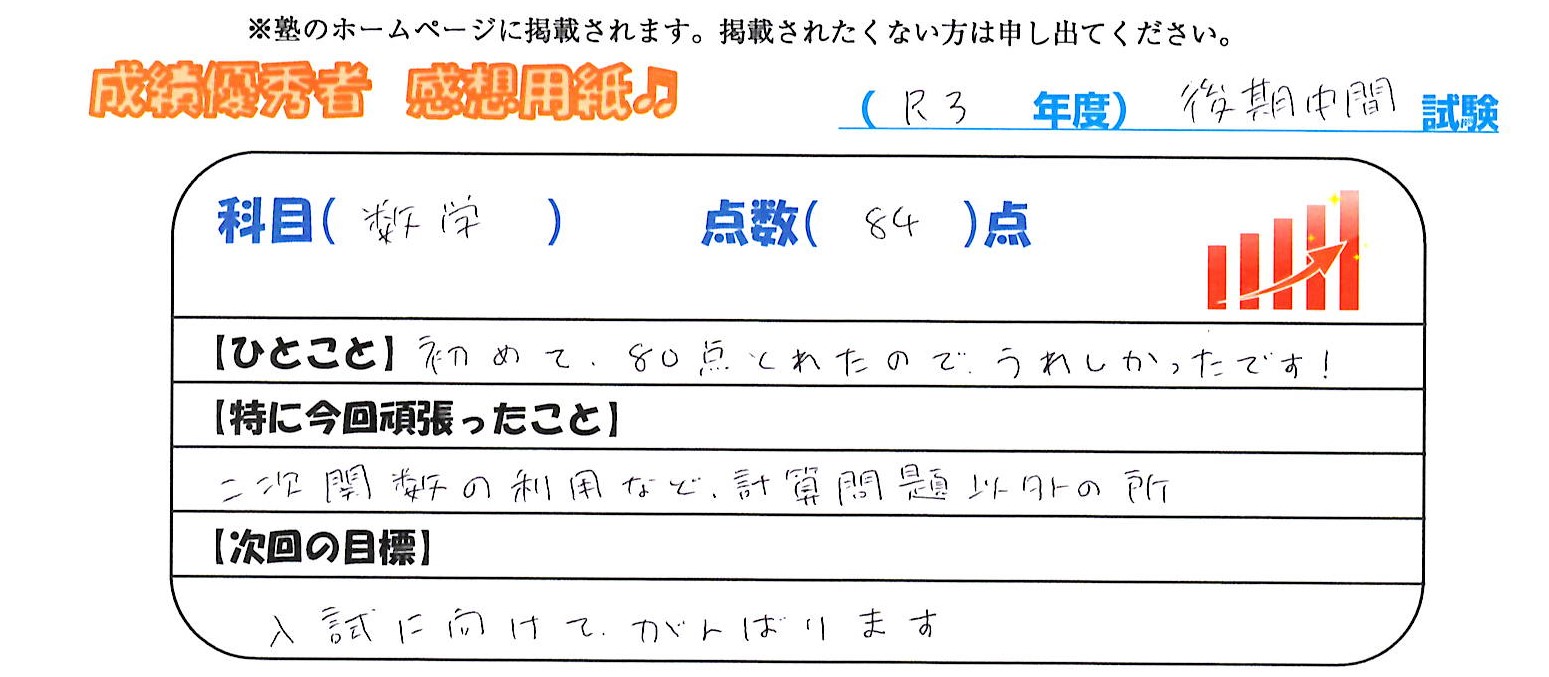 ※塾のホームページに掲載されます。掲載されたくない方は申し出てください。
成績優秀者 感想用紙♫
(R3 年度) 後期中間 試験
科目(数学) 点数(84)点
【ひとこと】初めて、80点とれたので、うれしかったです!
【特に今回頑張ったこと】
二次関数の利用など、計算問題以外の所
【次回の目標】
入試に向けて、がんばります